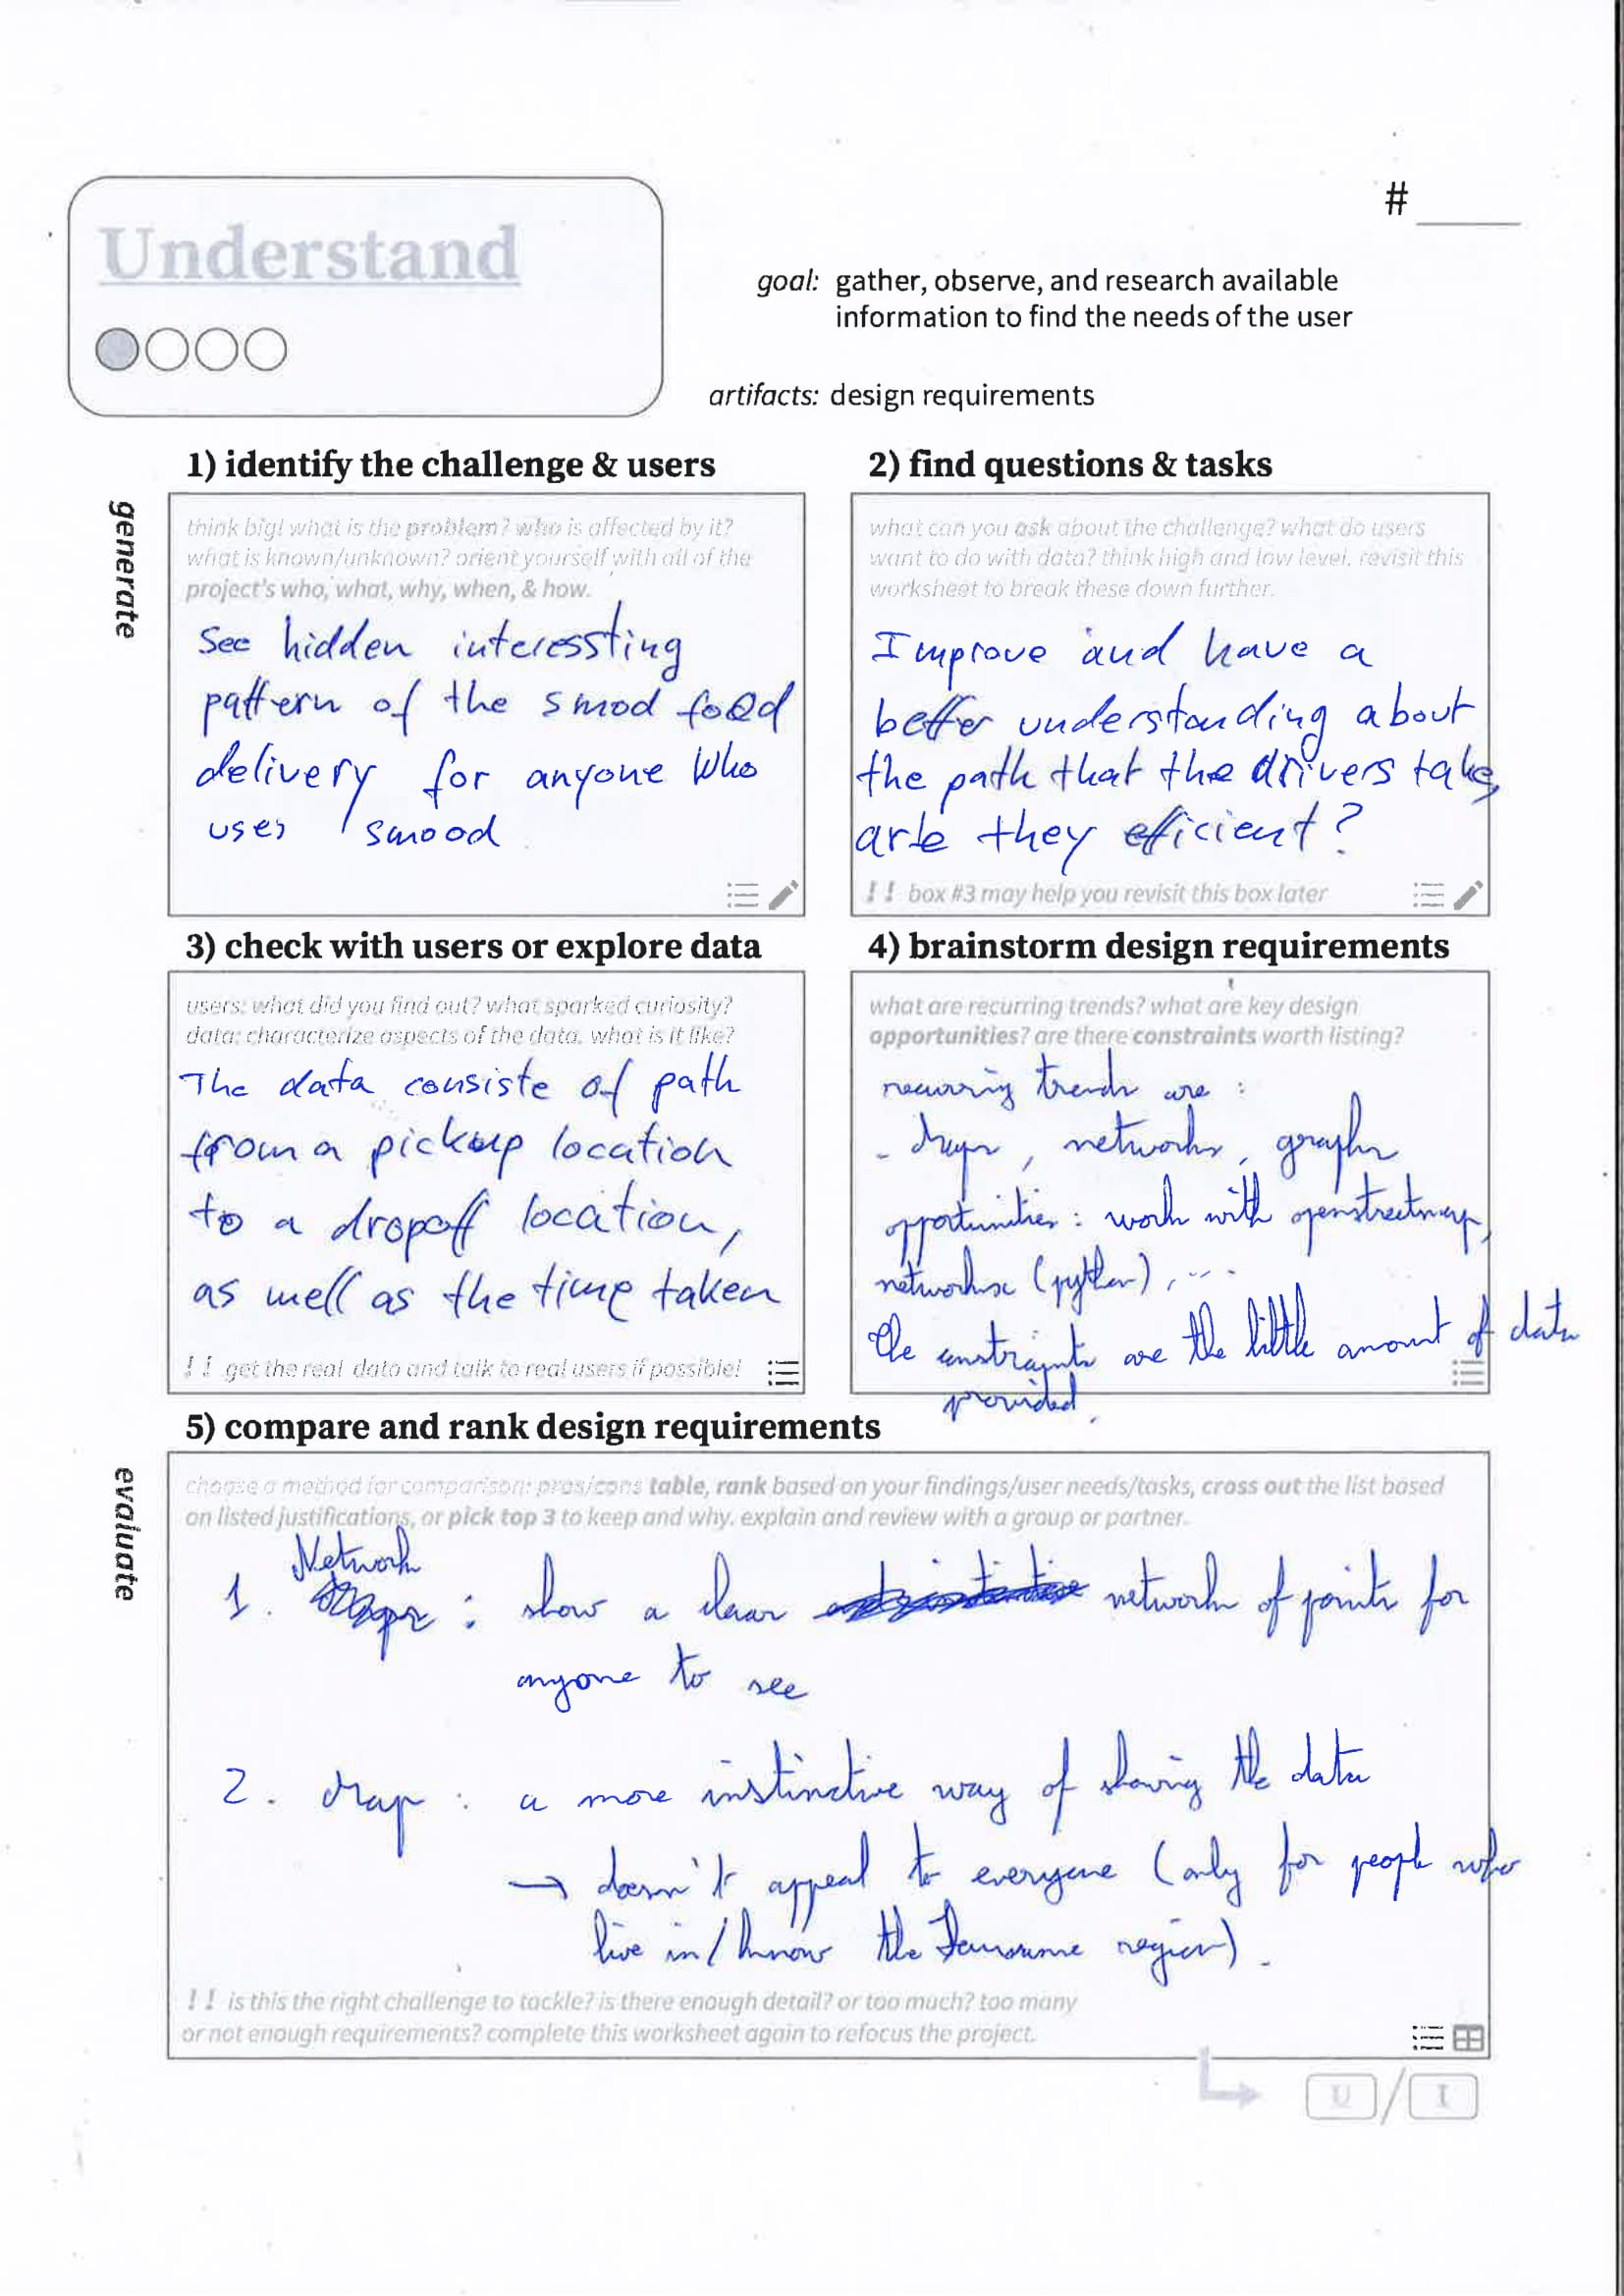 Understand
# ____
goal: gather, observe, and research available
information to find the needs of the user
artifacts: design requirements
generate
1) identify the challenge & users
think big! what is the problem? who is affected by it?
what is known/unknown? orient yourself with all of the
project's who, what, why, when, & how.
See hidden interessting
pattern of the smod food
delivery for anyone who
uses smood
2) find questions & tasks
what can you ask about the challenge? what do users
want to do with data? think high and low level. revisit this
worksheet to break these down further.
Improve and have a
better understanding about
the path that the drivers take,
are they efficient?
!! box #3 may help you revisit this box later
3) check with users or explore data
users: what did you find out? what sparked curiosity?
data: characterize aspects of the data. what is it like?
The data consiste of path
from a pickup location
to a dropoff location,
as well as the time taken
!! get the real data and talk to real users if possible!
4) brainstorm design requirements
what are recurring trends? what are key design
opportunities? are there constraints worth listing?
recurring trends are :
- Maps, networks, graphs
opportunities : work with openstreetmap,
networkx (python), ...
The constraints are the little amount of data
provided.
5) compare and rank design requirements
evaluate
choose a method for comparison: pros/cons table, rank based on your findings/user needs/tasks, cross out the list based
on listed justifications, or pick top 3 to keep and why. explain and review with a group or partner.
Network
1. : show a clear network of points for
anyone to see
2. Map : a more instinctive way of showing the data
→ doesn't appeal to everyone (only for people who
live in/know the Lausanne region).
!! is this the right challenge to tackle? is there enough detail? or too much? too many
or not enough requirements? complete this worksheet again to refocus the project.
U / I